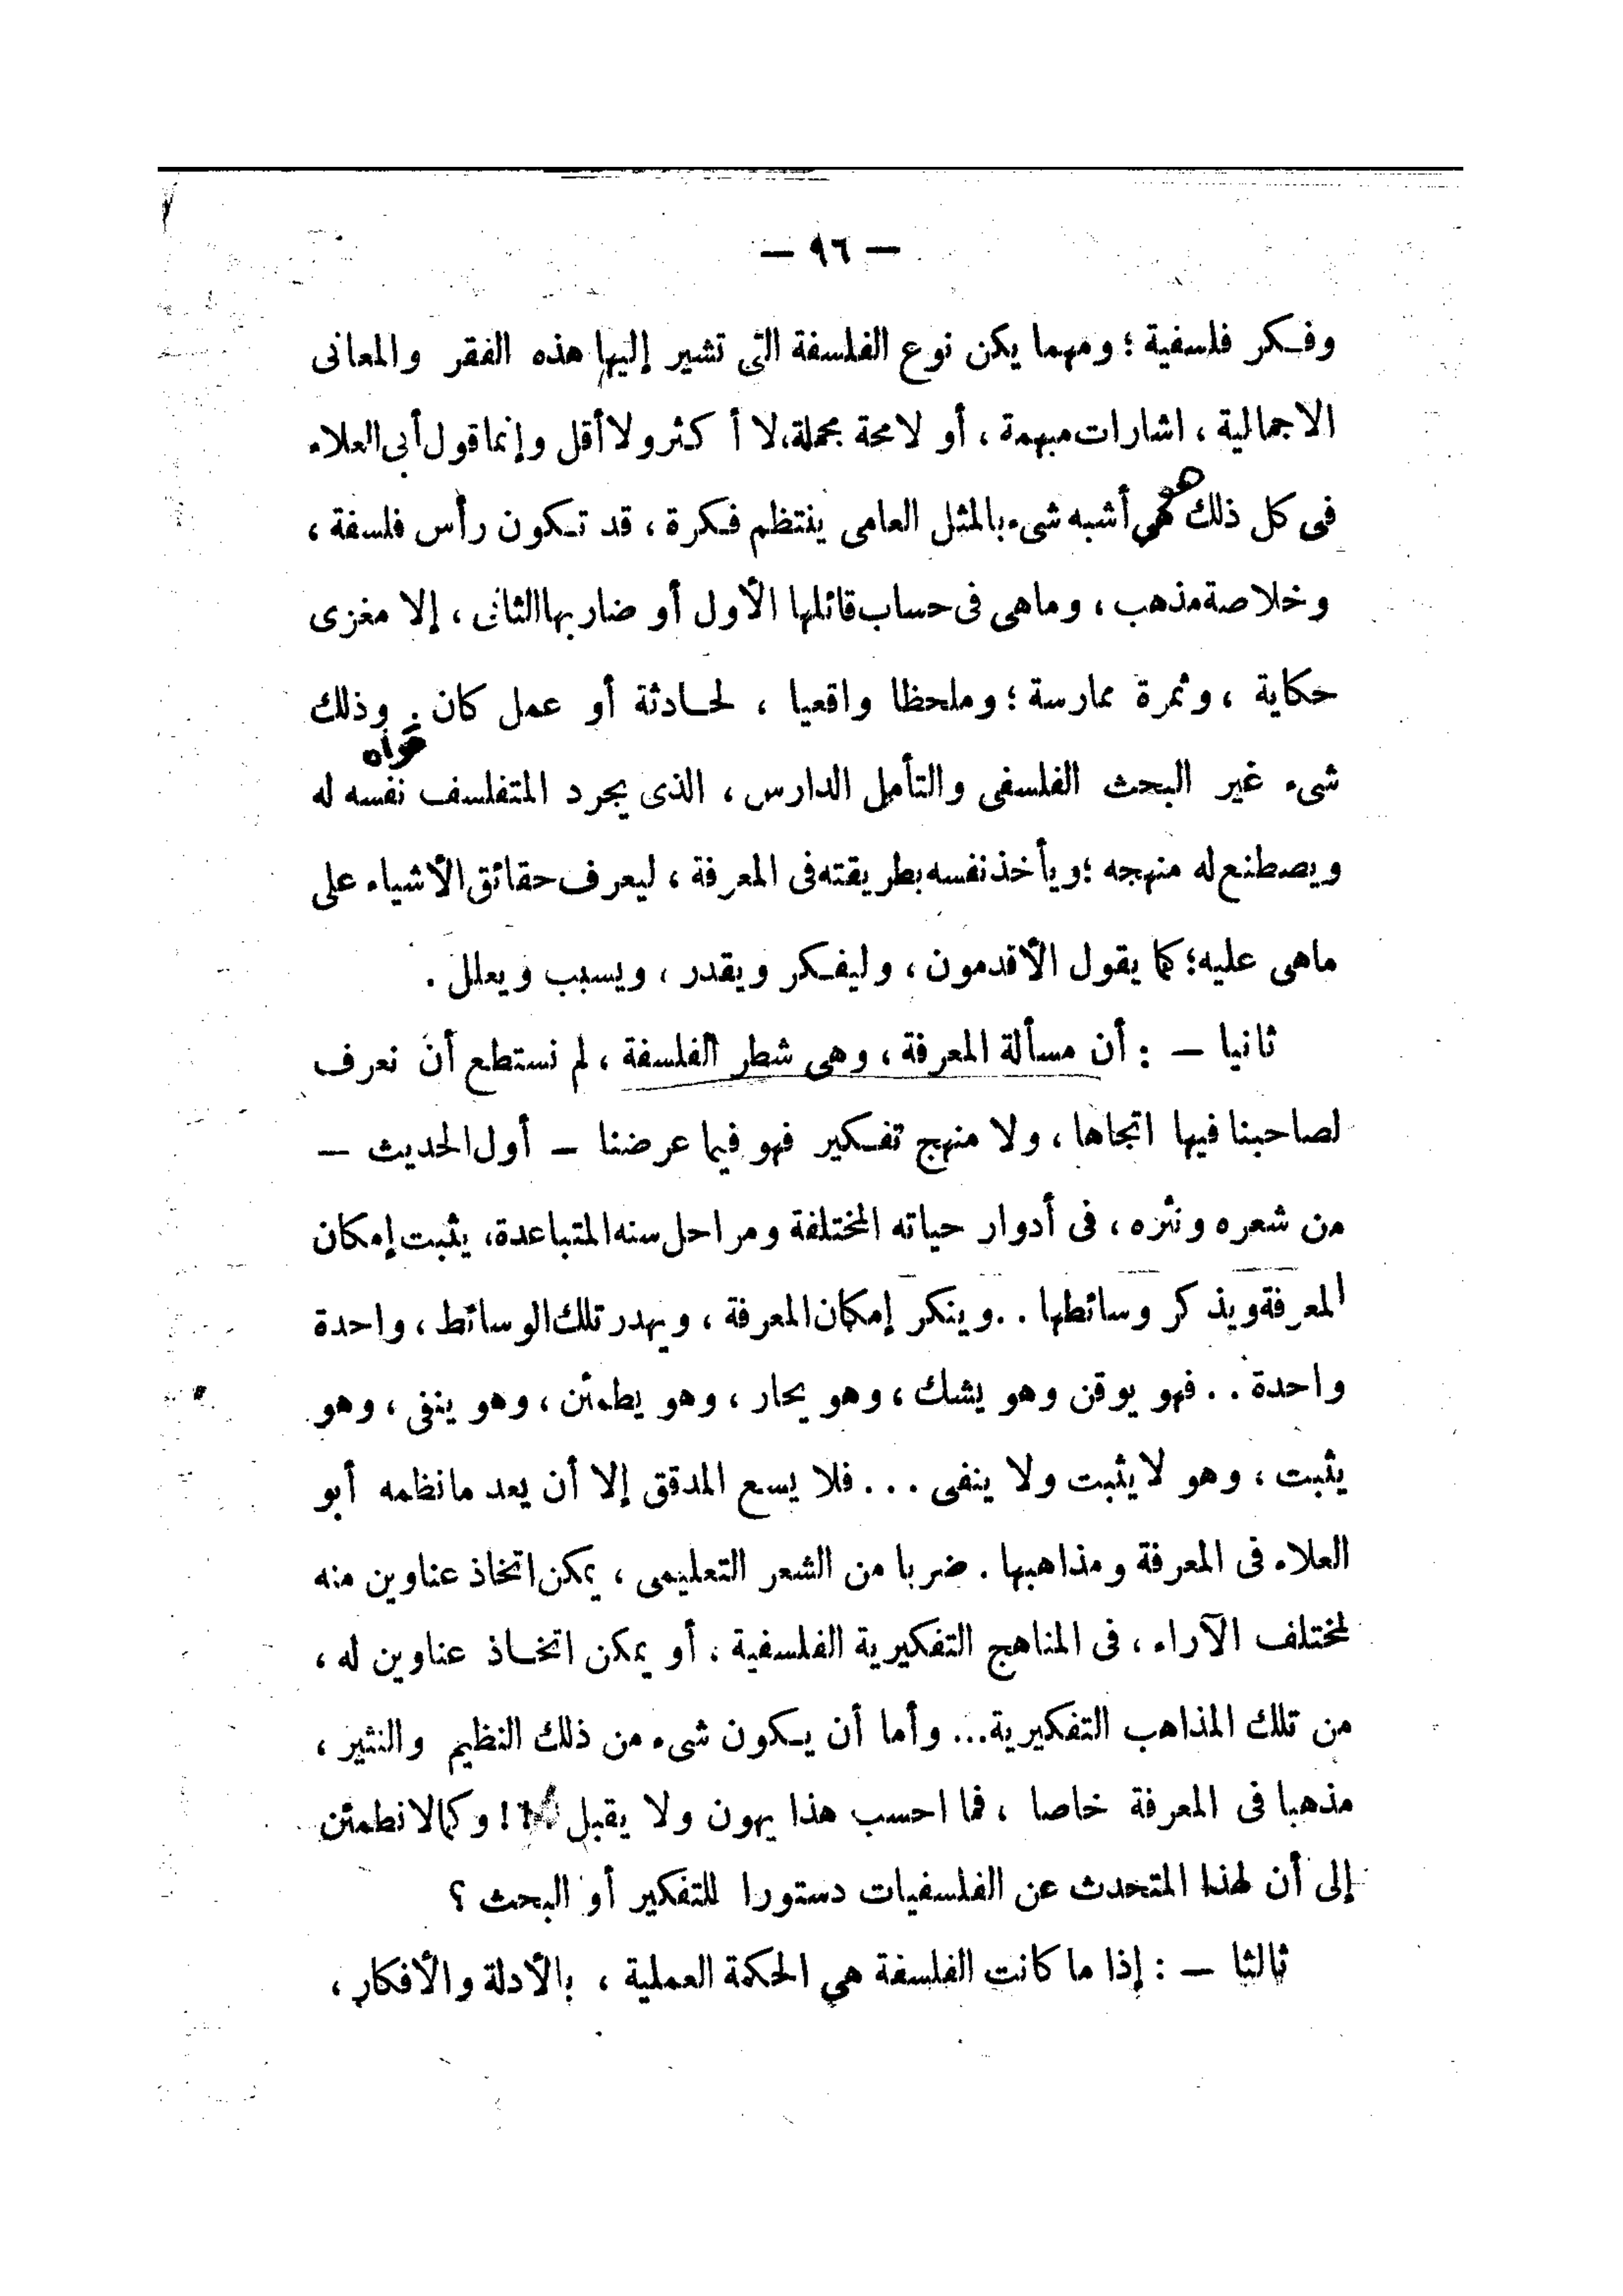 — ٩٦ —
وفكر فلسفية ؛ ومهما يكن نوع الفلسفة التى تشير إليها هذه الفقر والمعانى
الاجمالية ، اشارات مبهمة ، أو لامحة مجملة، لا أكثر ولا أقل وإنما قول أبى العلاء
فى كل ذلك هو أشبه شىء بالمثل العامى ينتظم فكرة ، قد تكون رأس فلسفة ،
وخلاصة مذهب ، وماهى فى حساب قائلها الأول أو ضاربها الثانى ، إلا مغزى
حكاية ، وثمرة ممارسة ؛ وملحظا واقعيا ، لحادثة أو عمل كان . وذلك
شىء غير البحث الفلسفى والتأمل الدارس ، الذى يجرد المتفلسف نفسه له
ويصطنع له منهجه ؛ ويأخذ نفسه بطريقته فى المعرفة ، ليعرف حقائق الأشياء على
ماهى عليه؛ كما يقول الأقدمون ، وليفكر ويقدر ، ويسبب ويعلل .
ثانيا — : أن مسألة المعرفة ، وهى شطر الفلسفة ، لم نستطع أن نعرف
لصاحبنا فيها اتجاها ، ولا منهج تفكير فهو فيما عرضنا — أول الحديث —
من شعره ونثره ، فى أدوار حياته المختلفة ومراحل سنه المتباعدة، يثبت إمكان
المعرفة ويذكر وسائطها . . وينكر إمكان المعرفة ، ويهدر تلك الوسائط ، واحدة
واحدة . . فهو يوقن وهو يشك ، وهو يحار ، وهو يطمئن ، وهو ينفى ، وهو
يثبت ، وهو لا يثبت ولا ينفى . . . فلا يسع المدقق إلا أن يعد مانظمه أبو
العلاء فى المعرفة ومذاهبها . ضربا من الشعر التعليمى ، يمكن اتخاذ عناوين منه
لمختلف الآراء ، فى المناهج التفكيرية الفلسفية ، أو يمكن اتخاذ عناوين له ،
من تلك المذاهب التفكيرية... وأما أن يكون شىء من ذلك النظيم والنثير ،
مذهبا فى المعرفة خاصا ، فما احسب هذا يهون ولا يقبل !! وكما لا نطمئن
إلى أن لهذا المتحدث عن الفلسفيات دستورا للتفكير أو البحث ؟
ثالثا — : إذا ما كانت الفلسفة هي الحكمة العملية ، بالأدلة والأفكار ،